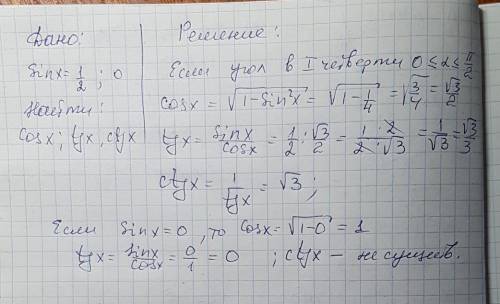 Дано:
sinx=1/2 ; 0
Найти:
cosx; tgx, ctgx
Решение:
Если угол в I четверти 0≤α≤π/2
cosx = √(1-sin²x) = √(1-1/4) = √(3/4) = √3/2
tgx = sinx/cosx = 1/2 : √3/2 = (1·2)/(2·√3) = 1/√3 = √3/3
ctgx = 1/tgx = √3;
Если sinx=0, то cosx=√(1-0) = 1
tgx = sinx/cosx = 0/1 = 0 ; ctgx – не сущев.